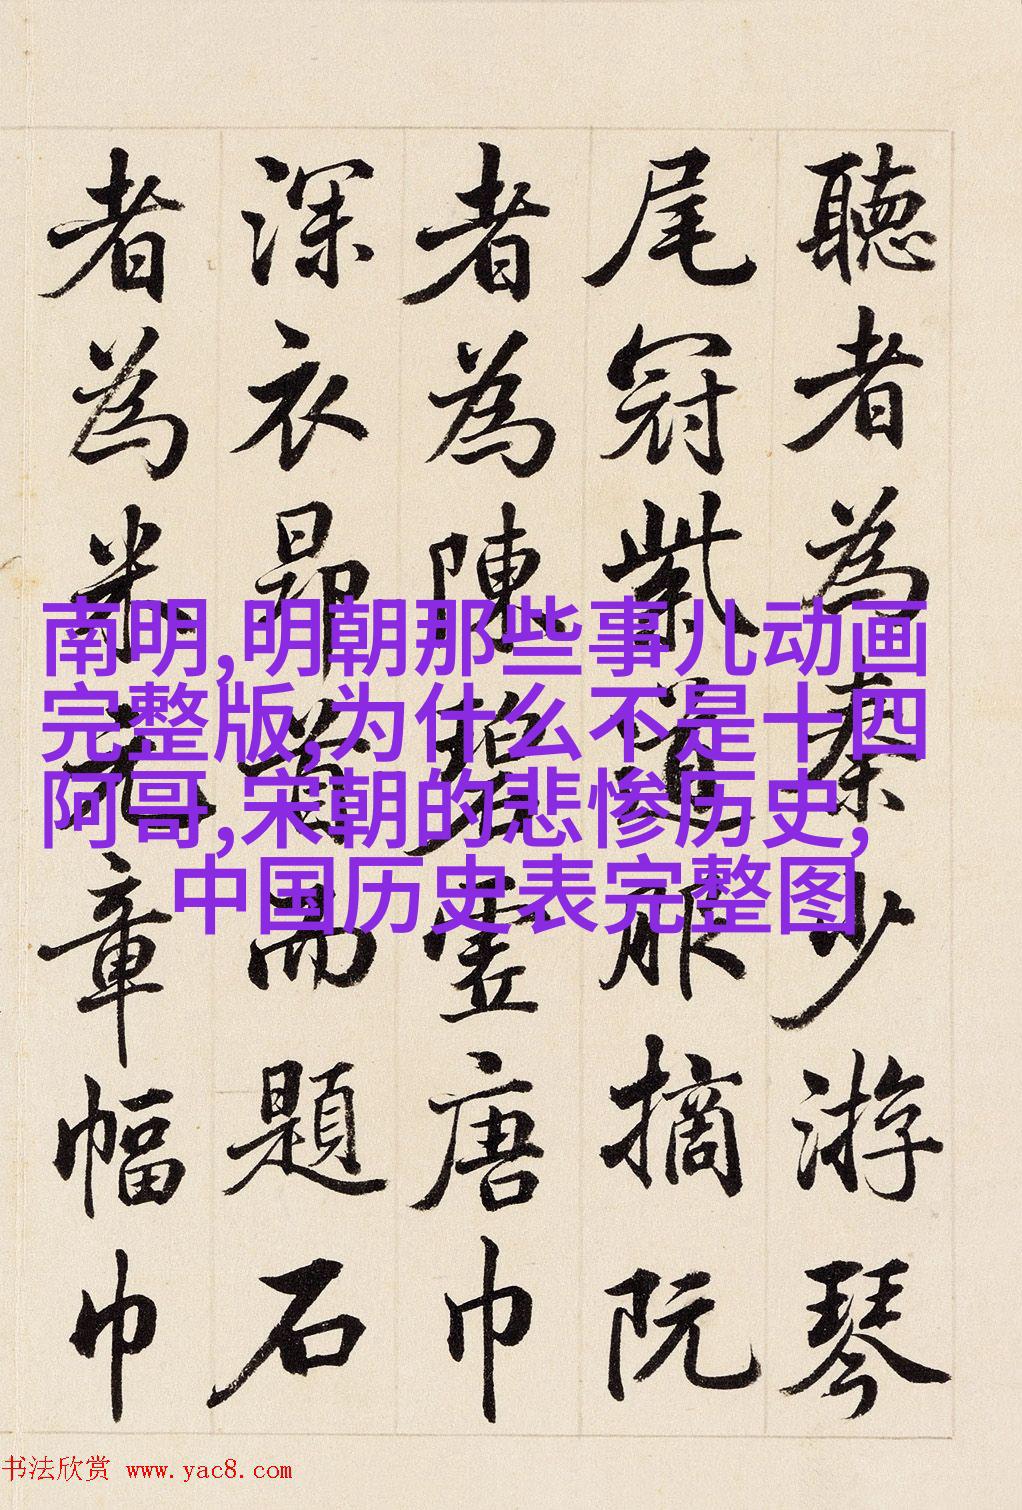 聽者為秦少游琴
尾冠紫道服摘阮
者為陳碧虛唐巾
深衣昂首而題石
者為米元章幅巾
南明,明朝那些事儿动画
完整版,为什么不是十四
阿哥,宋朝的悲惨历史,
中国历史表完整图
书法欣赏 www.yac8.com